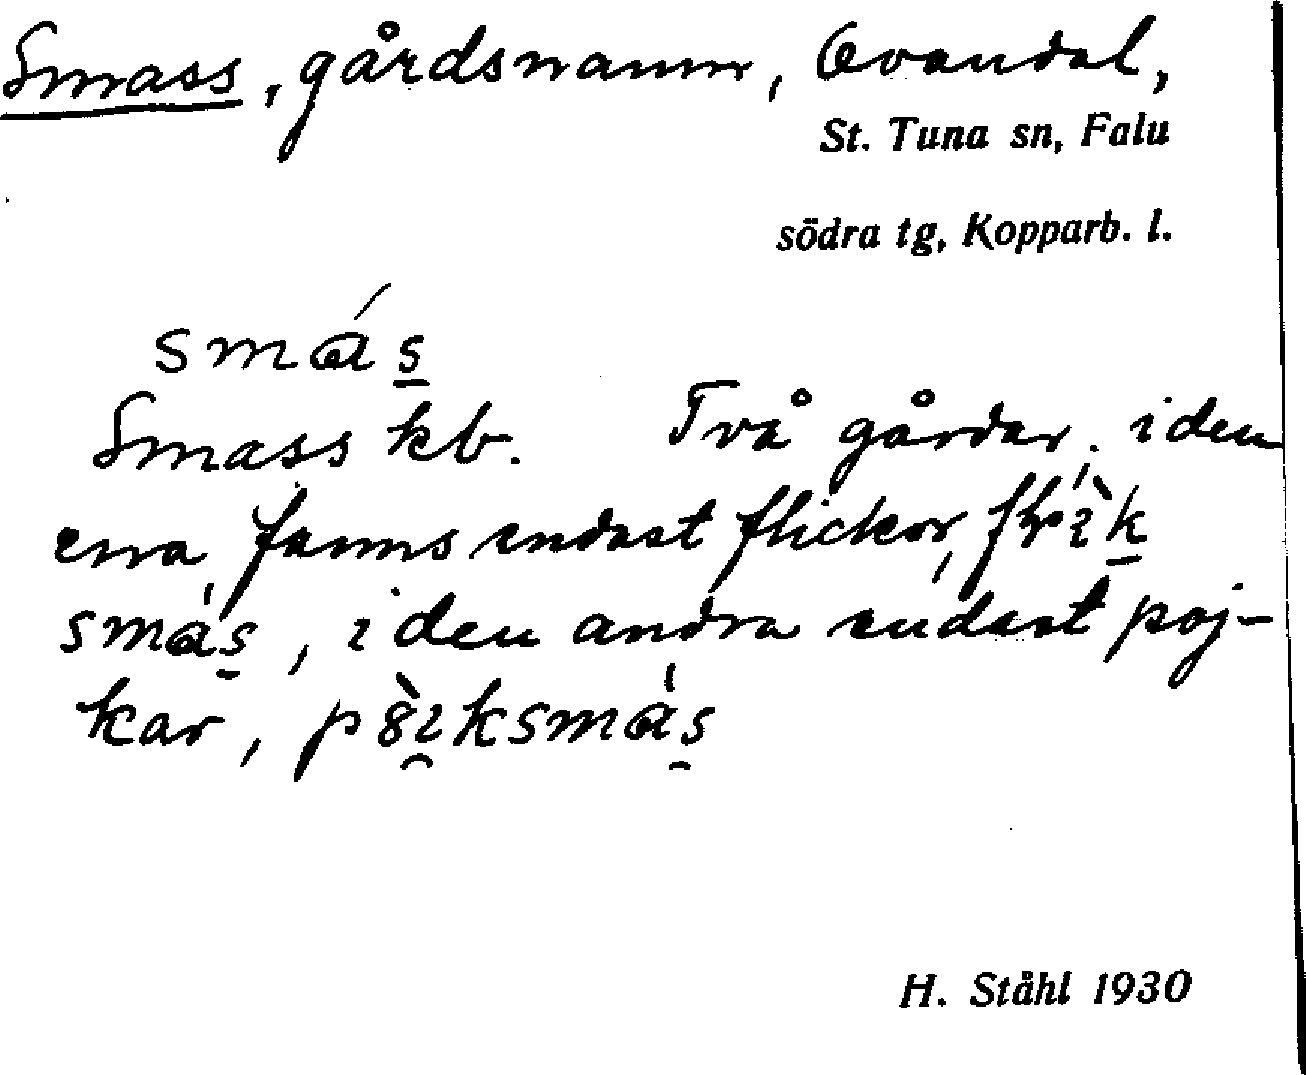 Smass, gårdsnamn, Ovandal,
St. Tuna sn, Falu
södra tg, Kopparb. l.
smás
Smass kb. Två gårdar; i den
ena fanns endast flickor, flìk
smás, i den andra endast poj-
kar, pòiksmás
H. Ståhl 1930